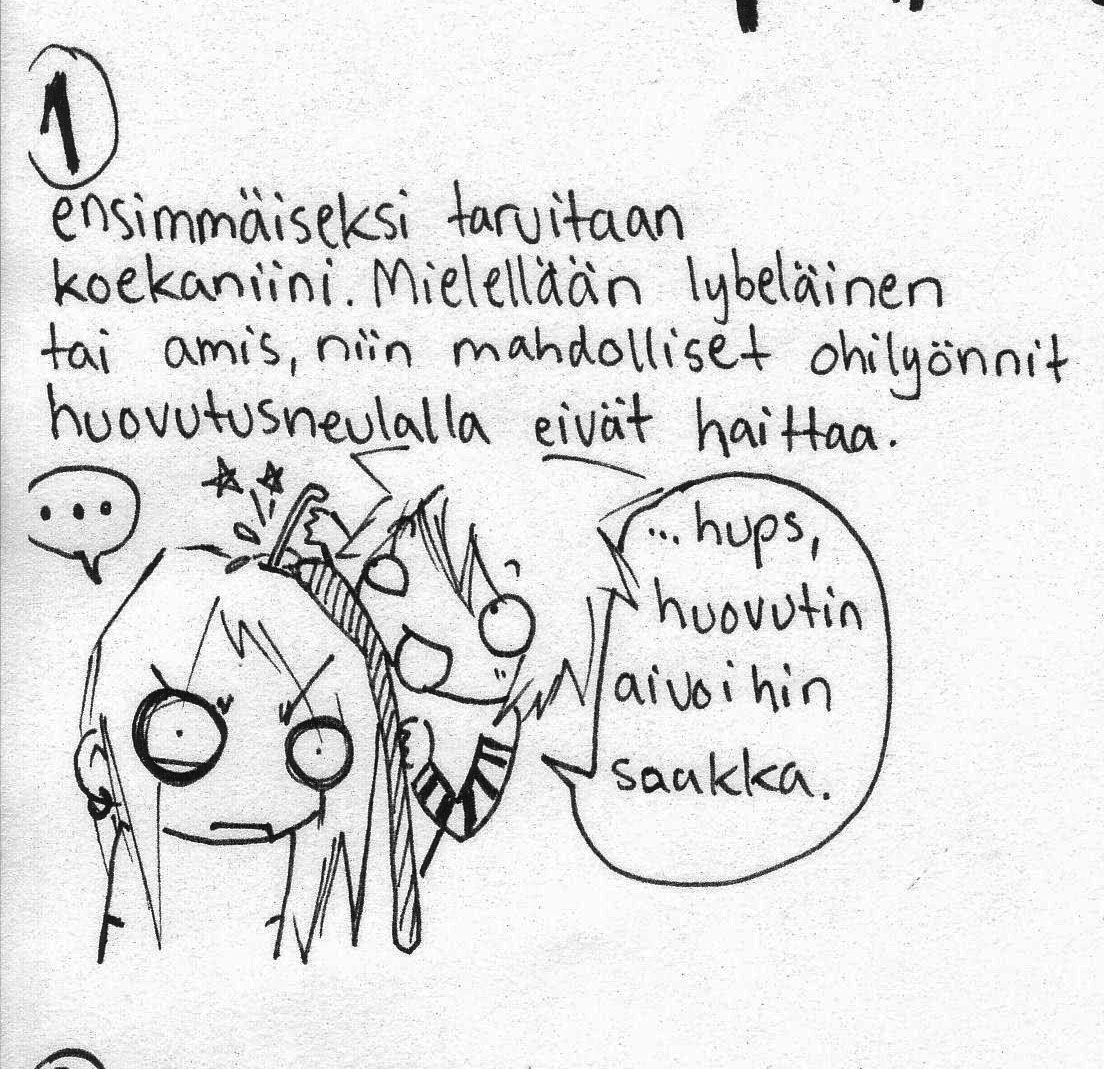 1
ensimmäiseksi tarvitaan
koekaniini. Mielellään lybeläinen
tai amis, niin mahdolliset ohilyönnit
huovutusneulalla eivät haittaa.
...
...hups,
huovutin
aivoihin
saakka.